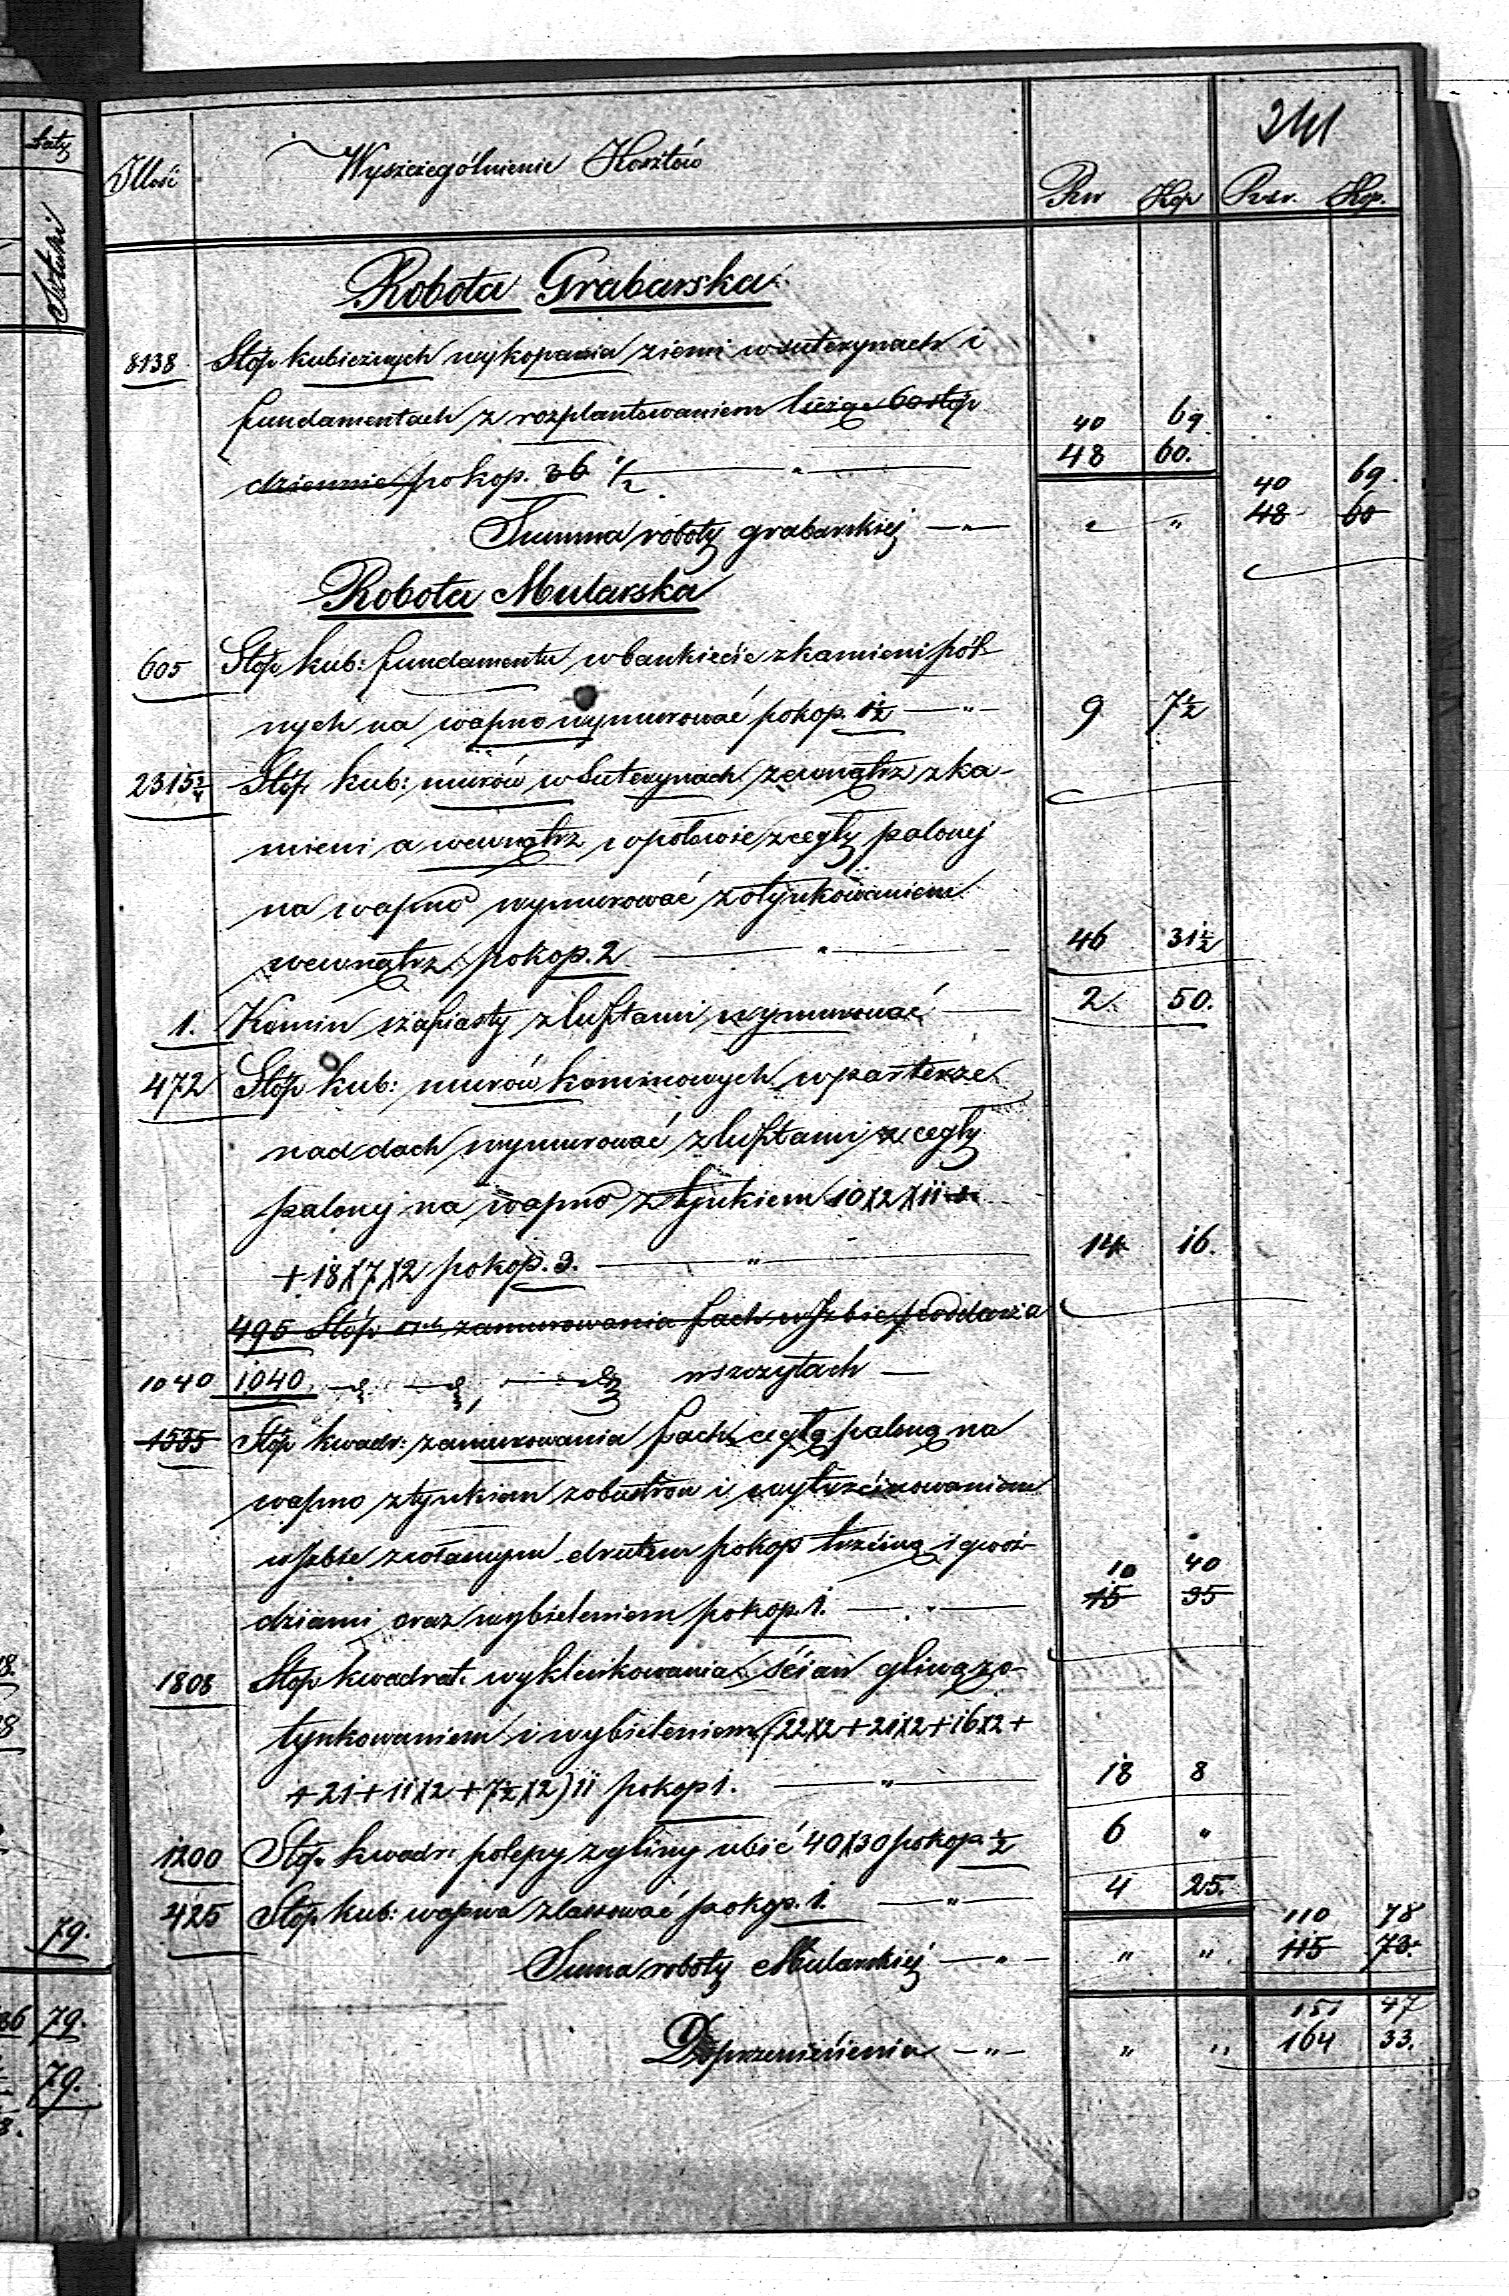 Laty
Sztuki
79.
36 79.
79.
341
Illość Wyszczególnienie Kosztów Rsr Kop Rsr. Kop.
Robota Grabarska
8138 Stóp kubicznych wykopania ziemi w suterynach i
fundamentach z rozplantowaniem licząc 60 stóp 40 69
dziennie po kop. 36 1/2 — " — 48 60.
40 69.
Summa roboty grabarskiej — " — " " 48 60
Robota Mularska
605 Stóp kub: fundamentu w bankiecie z kamieni pól-
nych na wapno wymurować po kop. 1½ — " — 9 7½
2315¾ Stóp kub: murów w Suterynach zewnątrz z ka-
mieni a wewnątrz w połowie z cegły palonej
na wapno wymurować z otynkowaniem
wewnątrz po kop. 2 — " — 46 31½
1. Komin szafiasty z luftami wymurować — 2 50.
472 Stóp kub: murów kominowych w parterze
nad dach wymurować z luftami z cegły
palonej na wapno z tynkiem 10X2X11
+ 18X7X2 po kop. 3. — " — 14 16.
495 Stóp zamurowania fach w szbie poddasza
1040 1040 — " — " — " w szczytach —
1535 Stóp kwadr: zamurowania fach cegłą paloną na
wapno z tynkiem z obustron i wytrzcinowaniem
drutem po kop trzciną i gwoź- 10 40
dziami oraz wybieleniem po kop. 1. — " — 15 35
1808 Stóp kwadrat. wyklinkowania ścian gliną z o-
tynkowaniem i wybieleniem (22X2 + 21X2 + 16X2 +
+ 21 + 11X2 + 7½X2) 11 po kop 1. — " — 18 8
1200 Stóp kwadr: polepy z gliny ubić 40X30 po kop ½ 6 "
425 Stóp kub: wapna zlassować po kop. 1. — " — 4 25.
110 78
Suma roboty Mularskiej — " — " " 115 73.
151 47
Do przeniesienia — " — " " 164 33.